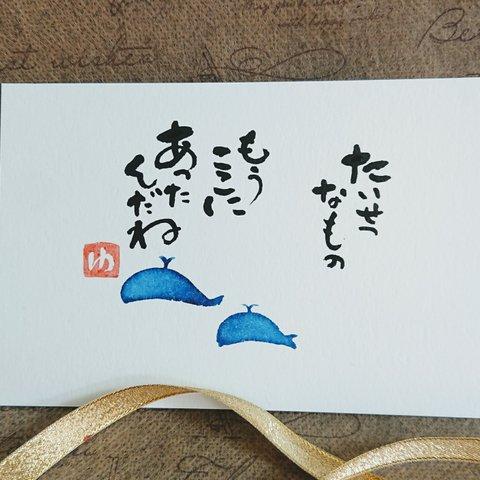 たいせつ
なもの
もう
ここに
あった
んだね
ゆ